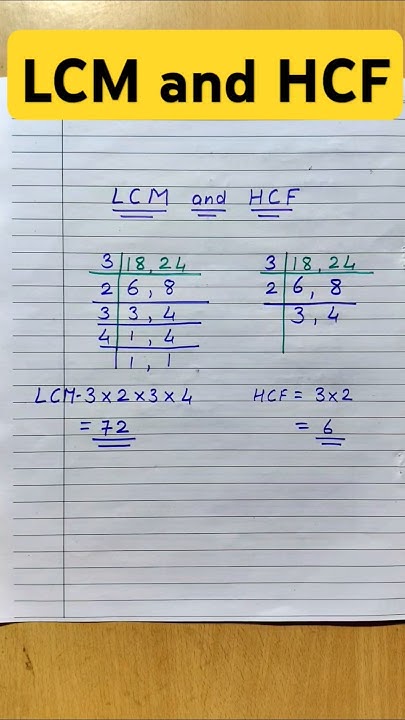 LCM and HCF
LCM and HCF
3 18, 24
2 6, 8
3 3, 4
4 1, 4
1, 1
LCM-3×2×3×4
= 72
3 18, 24
2 6, 8
3, 4
HCF = 3×2
= 6